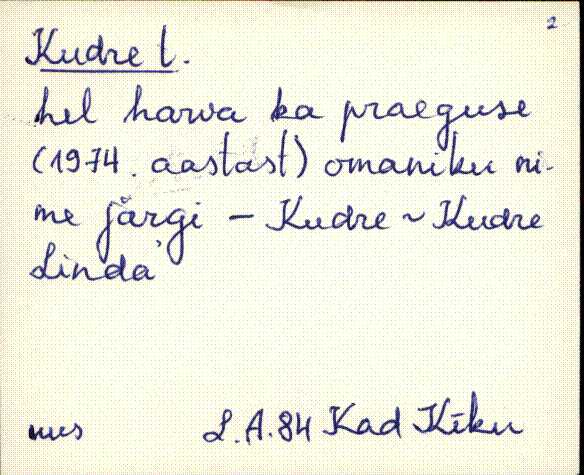 2
Kudre t.
hel harva ka praeguse
(1974. aastast) omaniku ni-
me järgi – Kudre ~ Kudre
Linda'
nus L.A.84 Kad Kĩku